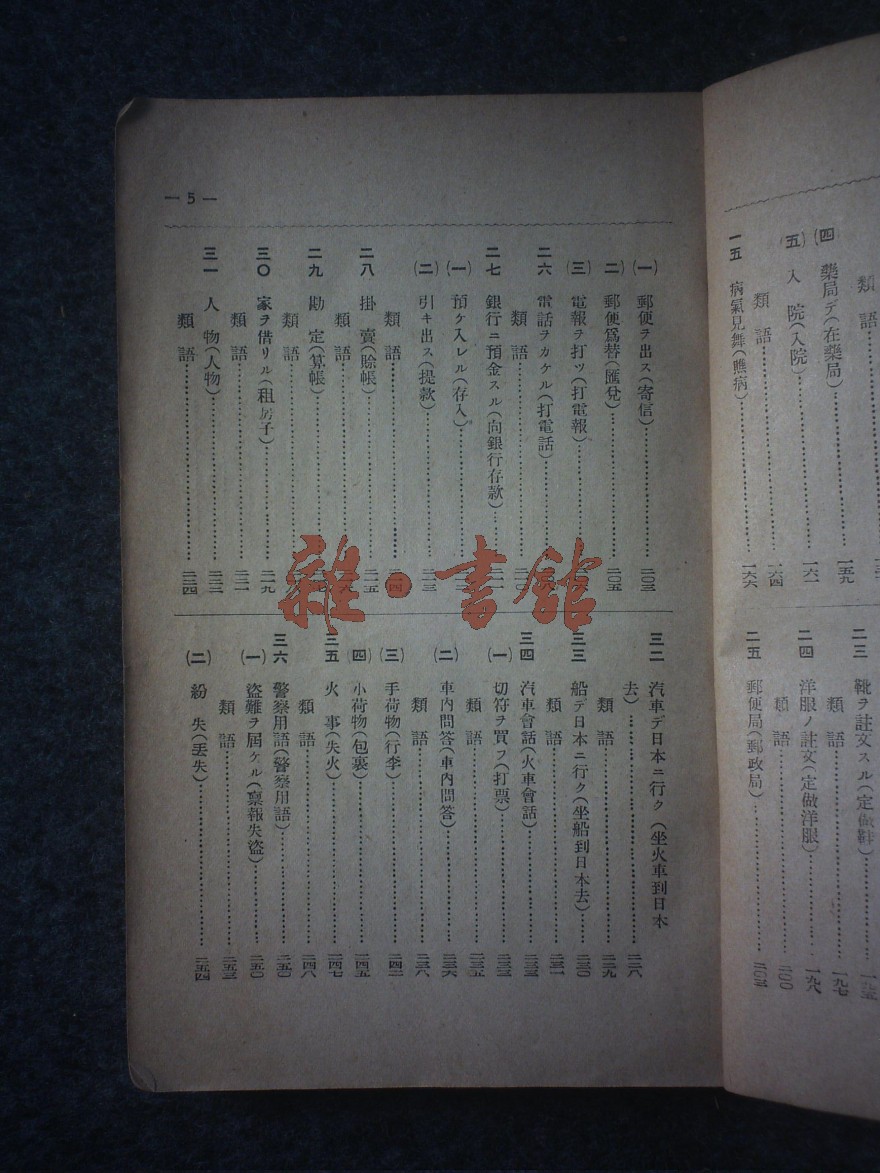 類語
(四) 藥局デ(在藥局)……一五九
(五) 入院(入院)……一六一
類語……一六四
一五 病氣見舞(瞧病)……一六六
二三 靴ヲ註文スル(定做鞋)……一九五
類語……一九七
二四 洋服ノ註文(定做洋服)……一九八
類語……二〇〇
二五 郵便局(郵政局)……二〇三
— 5 —
(一) 郵便ヲ出ス(寄信)……二〇三
(二) 郵便爲替(匯兌)……二〇五
(三) 電報ヲ打ツ(打電報)……
二六 電話ヲカケル(打電話)……
類語……二一〇
二七 銀行ニ預金スル(向銀行存款)……
(一) 預ケ入レル(存入)……
(二) 引キ出ス(提款)……二一三
類語……二一四
二八 掛賣(賒帳)……二一五
類語……二一六
二九 勘定(算帳)……
類語……
三〇 家ヲ借リル(租房子)……二一九
類語……二二一
三一 人物(人物)……二二二
類語……二二四
三二 汽車デ日本ニ行ク(坐火車到日本
去)……二二八
類語……二二九
三三 船デ日本ニ行ク(坐船到日本去)……二三〇
類語……二三一
三四 汽車會話(火車會話)……二三三
(一) 切符ヲ買フ(打票)……二三三
類語……二三五
(二) 車內問答(車內問答)……二三六
類語……二三八
(三) 手荷物(行李)……二四二
(四) 小荷物(包裹)……二四五
三五 火事(失火)……二四七
類語……二四八
三六 警察用語(警察用語)……二五〇
(一) 盜難ヲ屆ケル(禀報失盜)……二五〇
類語……二五三
(二) 紛失(丟失)……二五四
雜·書館